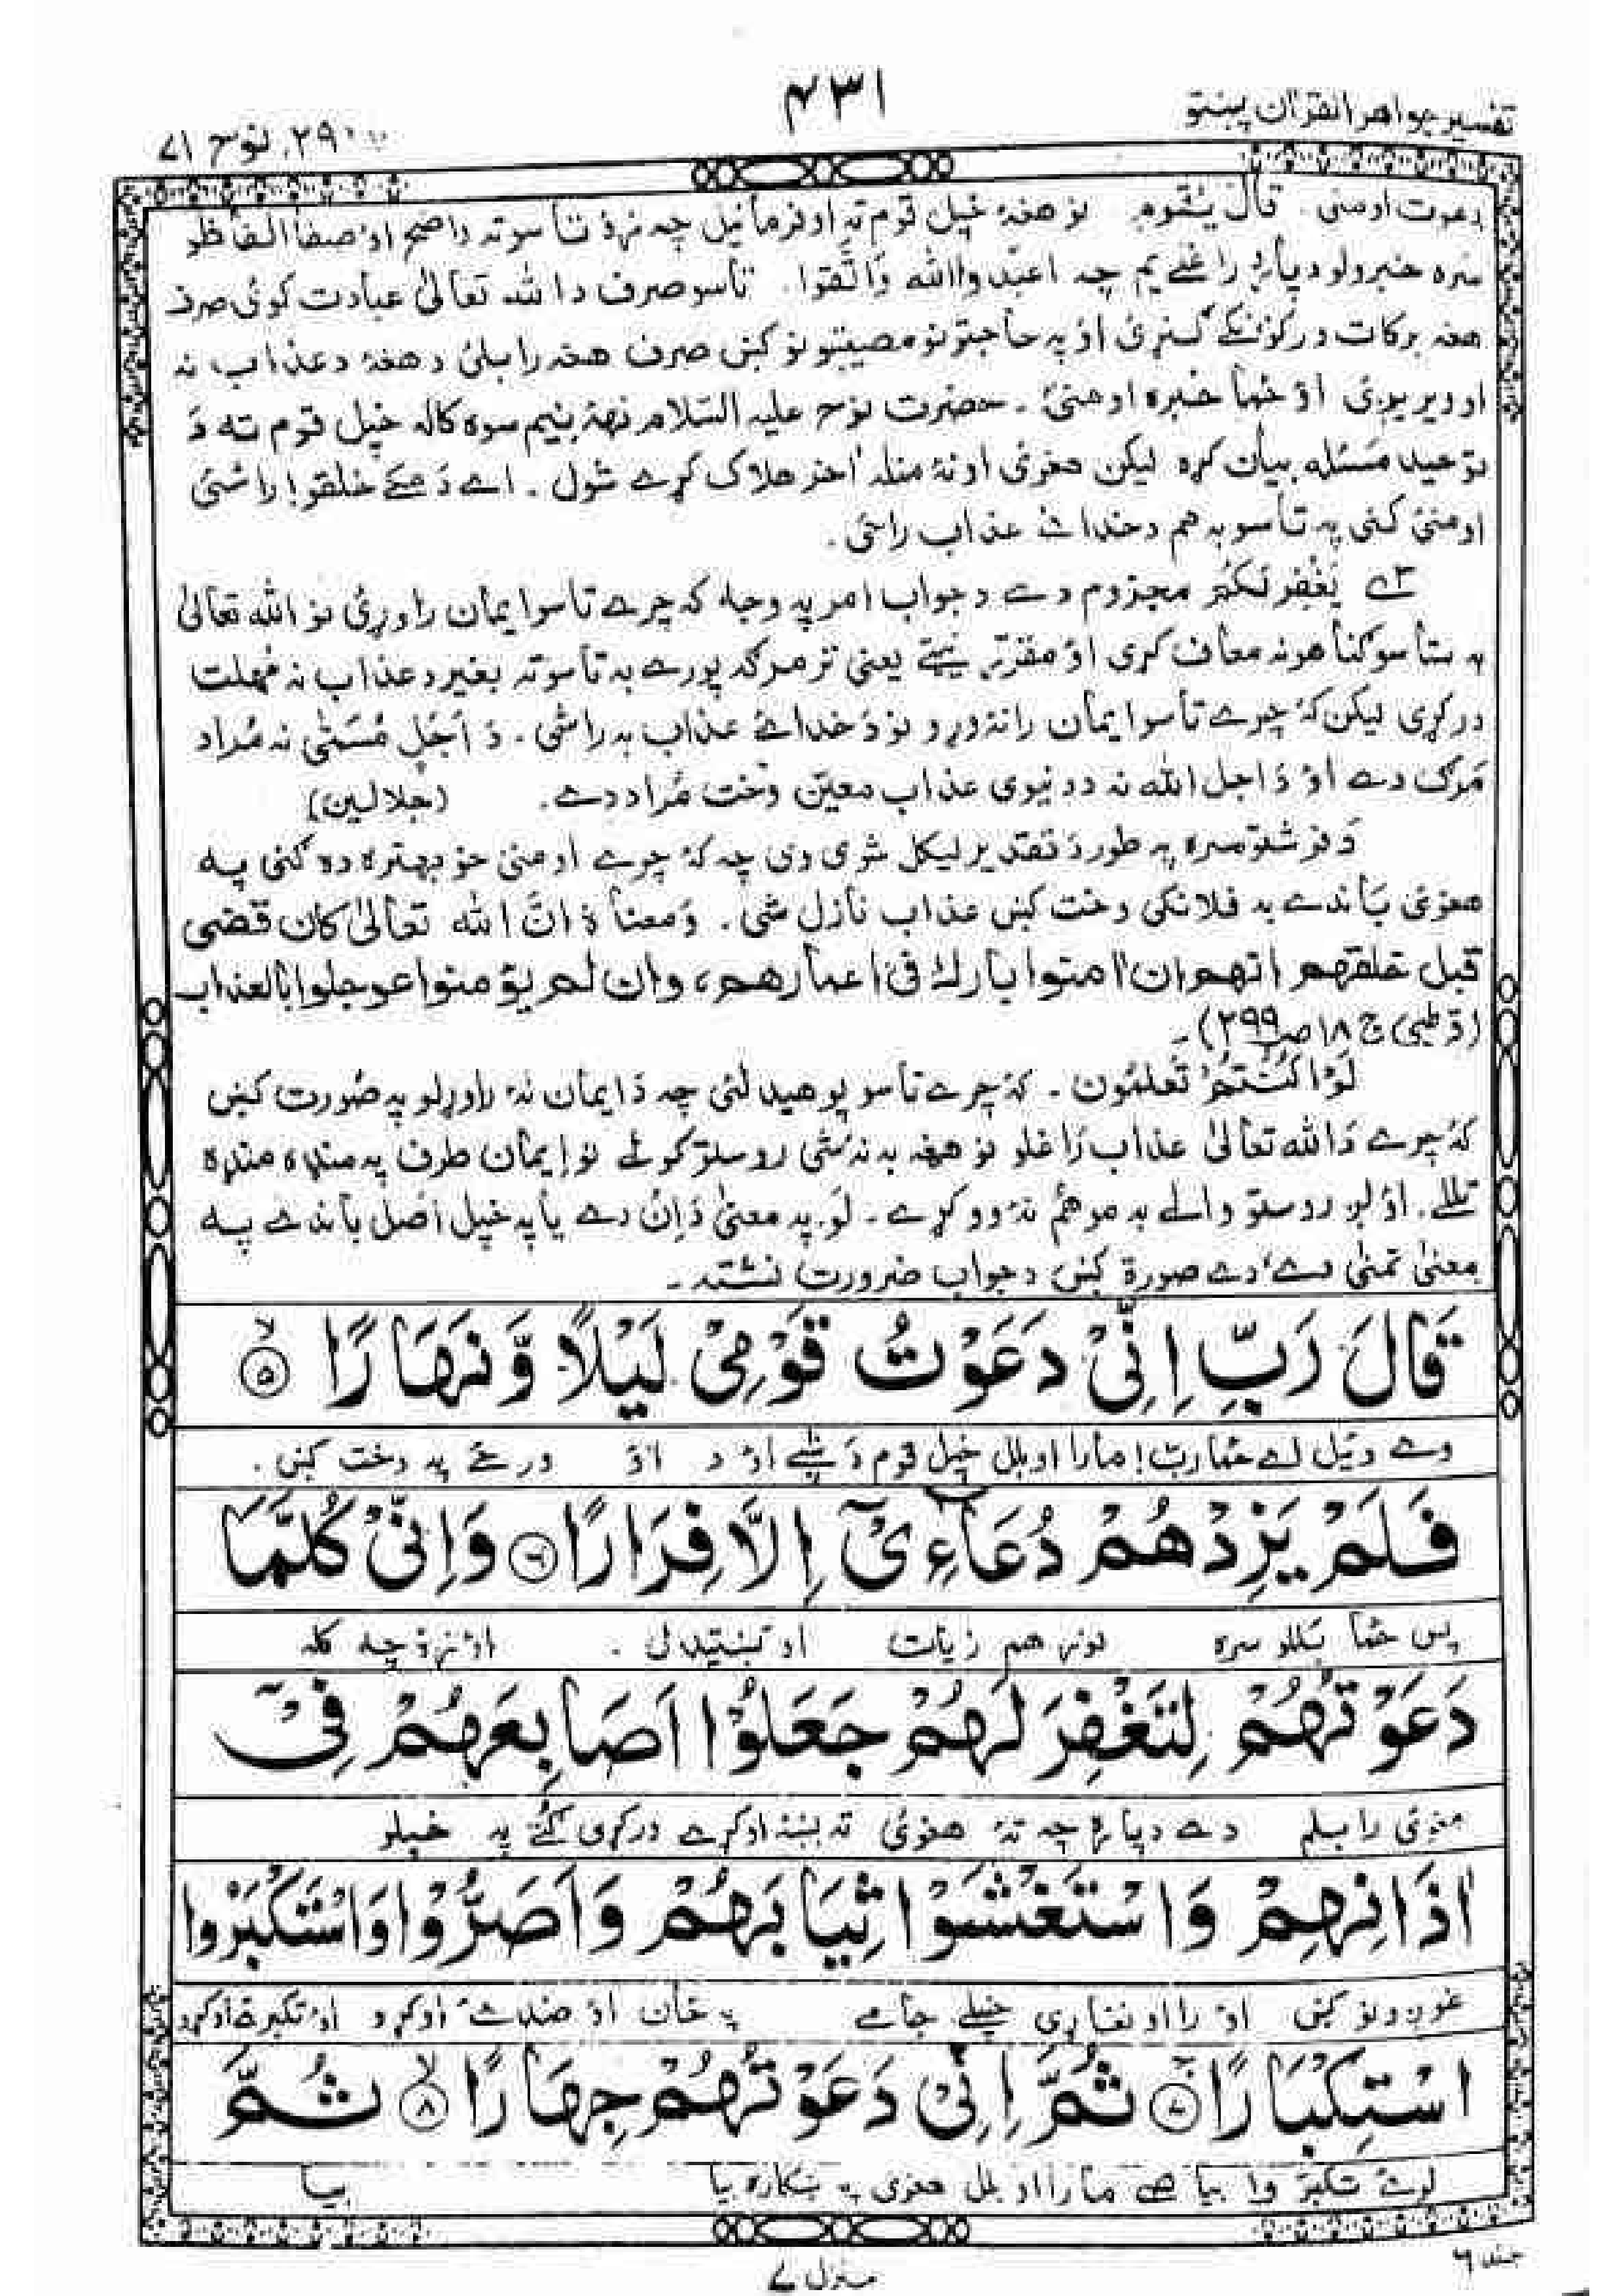 تفسیر جواهر القرآن پښتو
۴۳۱
۲۹، نوح ۷۱
دعوت اومنی. قال یٰقوم نو هغهٔ خپل قوم ته اوفرمائیل چه زهٔ تاسو ته واضح اؤ صفا الفاظو
سره خبرولو دپاره راغلے یم چه اعبدوا الله واتَّقوا. تاسو صرف د الله تعالیٰ عبادت کوئ صرف
هغه برکات درکوٗنکے ګنړئ اؤ په حاجتونو مصیبتونو کښ صرف هغه رابلئ د هغهٔ د عذاب نه
اویریږئ اؤ ځما خبره اومنئ. حضرت نوح علیه السّلام نههٔ نیم سوه کاله خپل قوم ته دَ
توحید مَسئله بیان کړه لیکن هغوئ اونهٔ منله آخر هلاک کړے شول. اے دَ مکے خلقو! راشئ
اومنئ کنی په تاسو به هم د خدائے عذاب راځی.
۳ے یَغْفِرْ لَکُمْ مجزوم دے د جواب امر په وجه که چرے تاسو ایمان راوړئ نو الله تعالیٰ
به ستاسو ګناهونه معاف کړی اؤ مقرّر نیټے یعنی تر مرګه پورے به تاسو ته بغیر د عذاب نه مُهلت
درکړی لیکن کهٔ چرے تاسو ایمان رانهٔ وړو نو دَ خدائے عذاب به راشی. دَ اَجَلٍ مُّسَمّٰی نه مُراد
مَرګ دے اؤ دَ اجل الله نه د دنیوی عذاب معیّن وَخت مُراد دے. (جلالین)
دَ نوشتو سره په طور دَ تقدیر لیکل شوی وی چه کهٔ چرے اومنی خو بهتره ده کنی په
هغوئ بَاندے به فلانکی وخت کښ عذاب نازل شی. وَمعناهٔ انَّ الله تعالیٰ کان قضٰی
قبل خلقهم انهم ان اٰمنوا بارك فی اعمارهم، وان لم یؤمنوا عوجلوا بالعذاب
(قرطبی) ج ۱۸ ص ۲۹۹) ـ
لَوْ کُنْتُمْ تَعلمُون. کهٔ چرے تاسو پوهیدلئ چه دَ ایمان نهٔ راوړلو په صُورت کښ
کهٔ چرے دَ الله تعالیٰ عذاب رَاغلو نو هغه به نهٔ شی روستو کولے نو اِیمان طرف په منډه منډه
تللے. اؤ لږ روستو والے به مو هُم نهٔ وو کړے. لَوْ. په معنیٰ دَ اِنْ دے یا په خپل اَصل باندے په
معنیٰ تمنّی دے، دے صورة کښ د جواب ضرورت نشته.
قَالَ رَبِّ اِنِّیْ دَعَوْتُ قَوْمِیْ لَیْلًا وَّنَهَارًا ﴿۵﴾
وے وئیل اے ځما ربّ! ما را اوبلل خپل قوم دَ شپے اؤ د اؤ ورځے په وخت کښ.
فَلَمْ یَزِدْهُمْ دُعَآءِیْٓ اِلَّا فِرَارًا ﴿۶﴾ وَاِنِّیْ کُلَّمَا
پس ځما بَللو سره نور هم زیات او تښتیدل. اؤ زهٔ چه کله
دَعَوْتُهُمْ لِتَغْفِرَ لَهُمْ جَعَلُوْٓا اَصَابِعَهُمْ فِیْٓ
هغوئ رابلم دے دپاره چه تهٔ هغوئ ته بښنه اوکړے ورکړی ګتے په خپلو
اٰذَانِهِمْ وَاسْتَغْشَوْا ثِیَابَهُمْ وَاَصَرُّوْا وَاسْتَکْبَرُوا
غوږونو کښی اؤ را اونغاړی خپلے جامے په ځان اؤ ضد اوکړو اؤ تکبر اوکړو
اسْتِکْبَارًا ﴿۷﴾ ثُمَّ اِنِّیْ دَعَوْتُهُمْ جِهَارًا ﴿۸﴾ ثُمَّ
لوئے تکبّر وا بیا هے ما را اوبلل هغوی په ښکاره بیا بیا
منزل ۷
جلد ۶